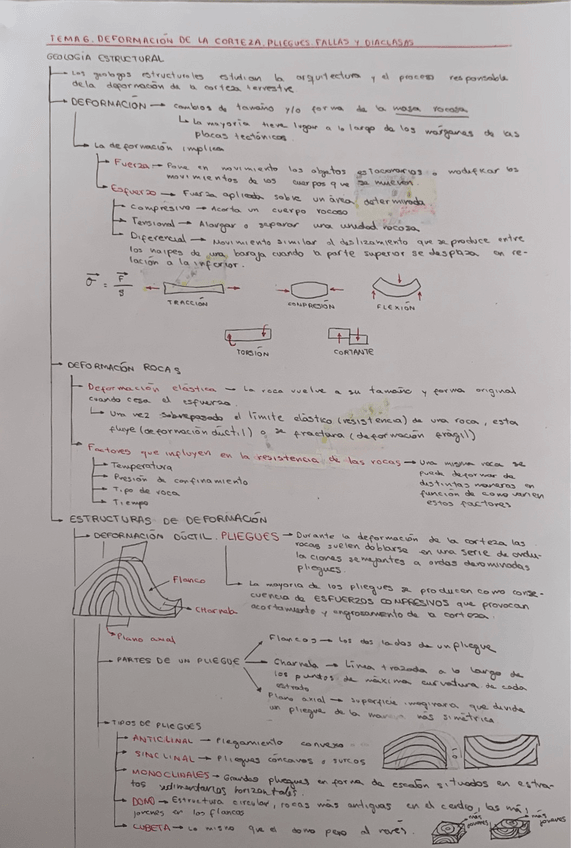 TEMA 6. DEFORMACIÓN DE LA CORTEZA. PLIEGUES, FALLAS Y DIACLASAS
GEOLOGÍA ESTRUCTURAL
Los geólogos estructurales estudian la arquitectura y el proceso responsable
de la deformación de la corteza terrestre.
DEFORMACIÓN → cambios de tamaño y/o forma de la masa rocosa
La mayoría tiene lugar a lo largo de los márgenes de las
placas tectónicas.
La deformación implica
Fuerza → Pone en movimiento los objetos estacionarios o modificar los
movimientos de los cuerpos que se mueven.
Esfuerzo → Fuerza aplicada sobre un área determinada
Compresivo → Acorta un cuerpo rocoso
Tensional → Alargar o separar una unidad rocosa
Diferencial → Movimiento similar al deslizamiento que se produce entre
los naipes de una baraja cuando la parte superior se desplaza en re-
lación a la inferior.
σ = F/S
TRACCIÓN
COMPRESIÓN
FLEXIÓN
TORSIÓN
CORTANTE
DEFORMACIÓN ROCAS
Deformación elástica → La roca vuelve a su tamaño y forma original
cuando cesa el esfuerzo
Una vez sobrepasado el límite elástico (resistencia) de una roca, esta
fluye (deformación dúctil) o se fractura (deformación frágil)
Factores que influyen en la resistencia de las rocas → Una misma roca se
puede deformar de
distintas maneras en
función de como varíen
estos factores
Temperatura
Presión de confinamiento
Tipo de roca
Tiempo
ESTRUCTURAS DE DEFORMACIÓN
DEFORMACIÓN DÚCTIL. PLIEGUES → Durante la deformación de la corteza las
rocas suelen doblarse en una serie de ondu-
laciones semejantes a ondas denominadas
pliegues.
Flanco
Charnela
Plano axial
La mayoría de los pliegues se producen como conse-
cuencia de ESFUERZOS COMPRESIVOS que provocan
acortamiento y engrosamiento de la corteza.
PARTES DE UN PLIEGUE
Flancos → Los dos lados de un pliegue
Charnela → Línea trazada a lo largo de
los puntos de máxima curvatura de cada
estrato
Plano axial → superficie imaginaria que divide
un pliegue de la manera más simétrica
TIPOS DE PLIEGUES
ANTICLINAL → Plegamiento convexo
SINCLINAL → Pliegues cóncavos o surcos
MONOCLINALES → Grandes pliegues en forma de escalón situados en estra-
tos sedimentarios horizontales.
DOMO → Estructura circular, rocas más antiguas en el centro, las más
jóvenes en los flancos
CUBETA → Lo mismo que el domo pero al revés.
más
jóvenes
más
jóvenes